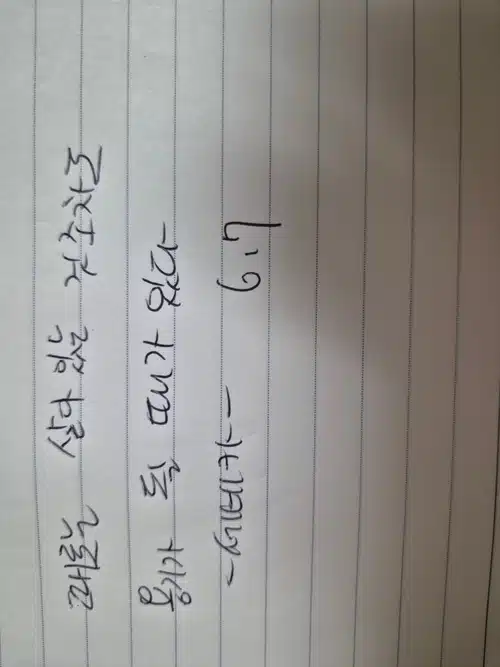 때로는 살아 있는 것조차도
용기가 될 때가 있다
-세네카-
6.7